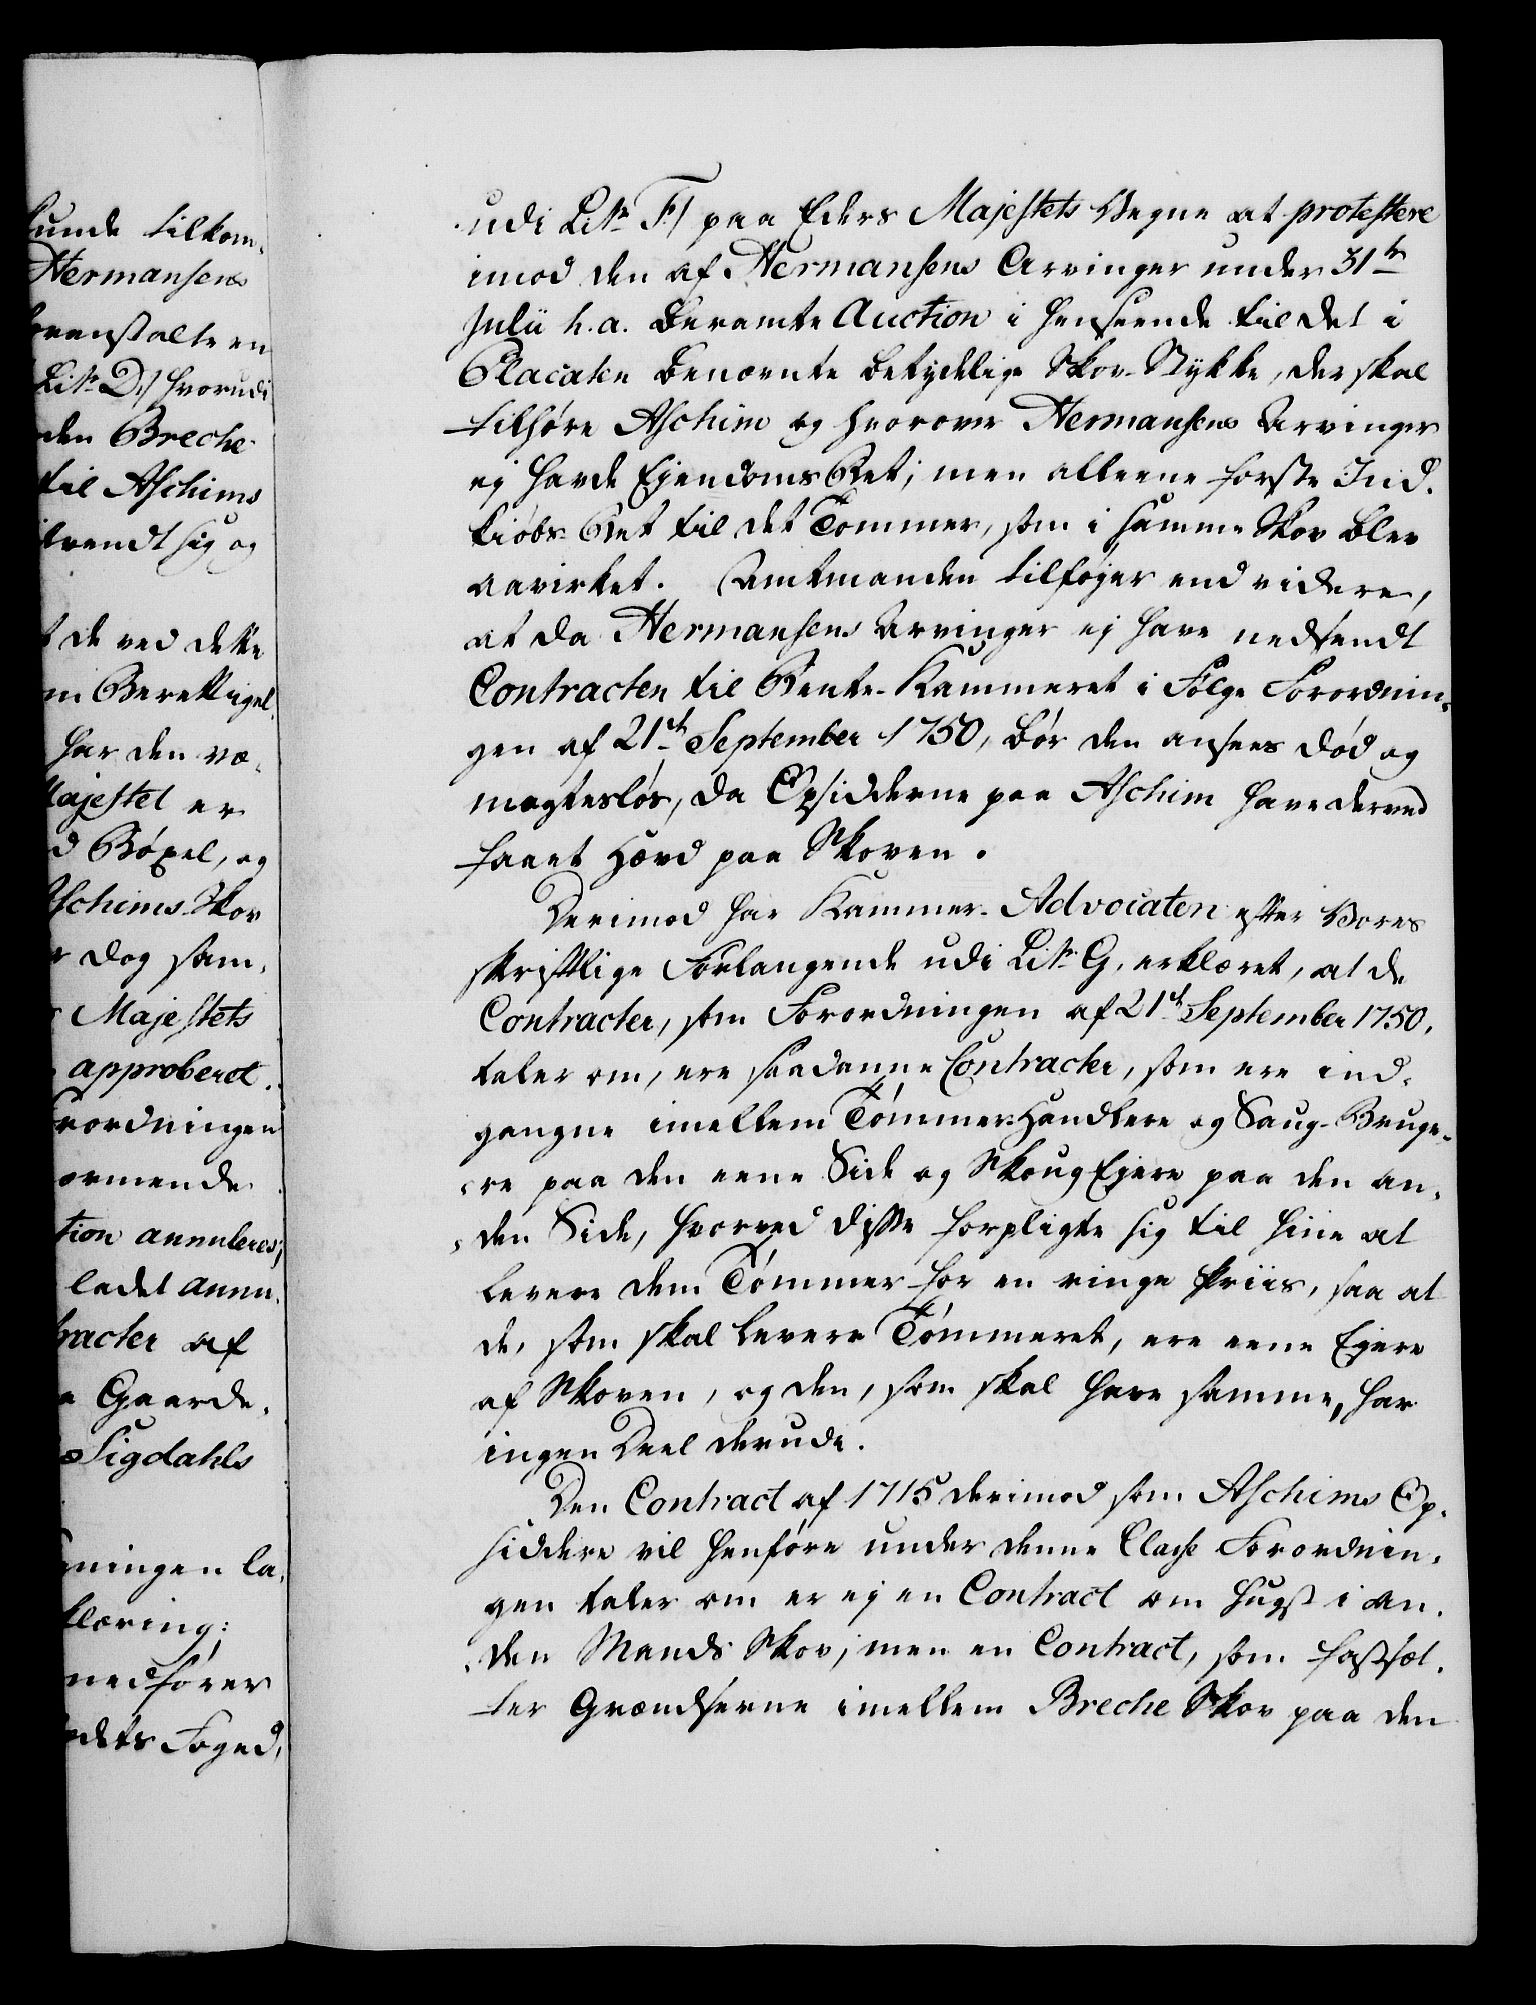 kunde tilkom-
Hermansens
foranstalte en
Litr. D./ hvorudi
den Breche
til Aschims
vendt sig og
t de ved dette
en Berettigel-
har den ve-
Majestet er
d Böxel, og
Aschims Skov
r dog sam-
Majestets
approberet.
rordningen
ormende
tion annuleres;
ladet annu-
tracter af
e Gaarde,
Sigdahls
ningen la-
klæring:
medfører
edets Foged,
udi Litr. F/ paa Eders Majestets Vegne at protestere
imod den af Hermansens Arvinger under 31te
Julii h. a. beramte Auction i Henseende til det i
Placaten benævnte betydelige Skov-Stykke, der skal
tilhøre Aschim og hvorover Hermansens Arvinger
ej havde Ejendoms Ret; men alleene første Ind-
kiöbs-Ret til det Tömmer, som i samme Skov blev
aavirket. Amtmanden tilføjer end videre,
at da Hermansens Arvinger ej have nedsendt
Contracten til Rente-Kammeret i Følge Forordnin-
gen af 21de September 1750, bör den ansees död og
magteslös, da Opsidderne paa Aschim have derved
faaet Hævd paa Skoven.
Derimod har Kammer-Advocaten efter Vores
skriftlige Forlangende udi Litr. G, erklæret, at de
Contracter, som Forordningen af 21de September 1750,
taler om, ere saadanne Contracter, som ere ind-
gangne imellem Tömmer-Handlere og Saug-Bruge-
re paa den eene Side og Skoug Ejere paa den an-
den Side, hvorved disse forpligte sig til hine at
levere dem Tömmer for en ringe Priis, saa at
de, som skal levere Tömmeret, ere eene Ejere
af Skoven, og den, som skal have samme, har
ingen Deel derudi.
Den Contract af 1715 derimod som Aschims Op-
siddere vil henføre under denne Classe Forordnin-
gen taler om er ej en Contract om Hugst i an-
den Mands Skov; men en Contract, som fastsæt-
ter Grændserne imellem Breche Skov paa den